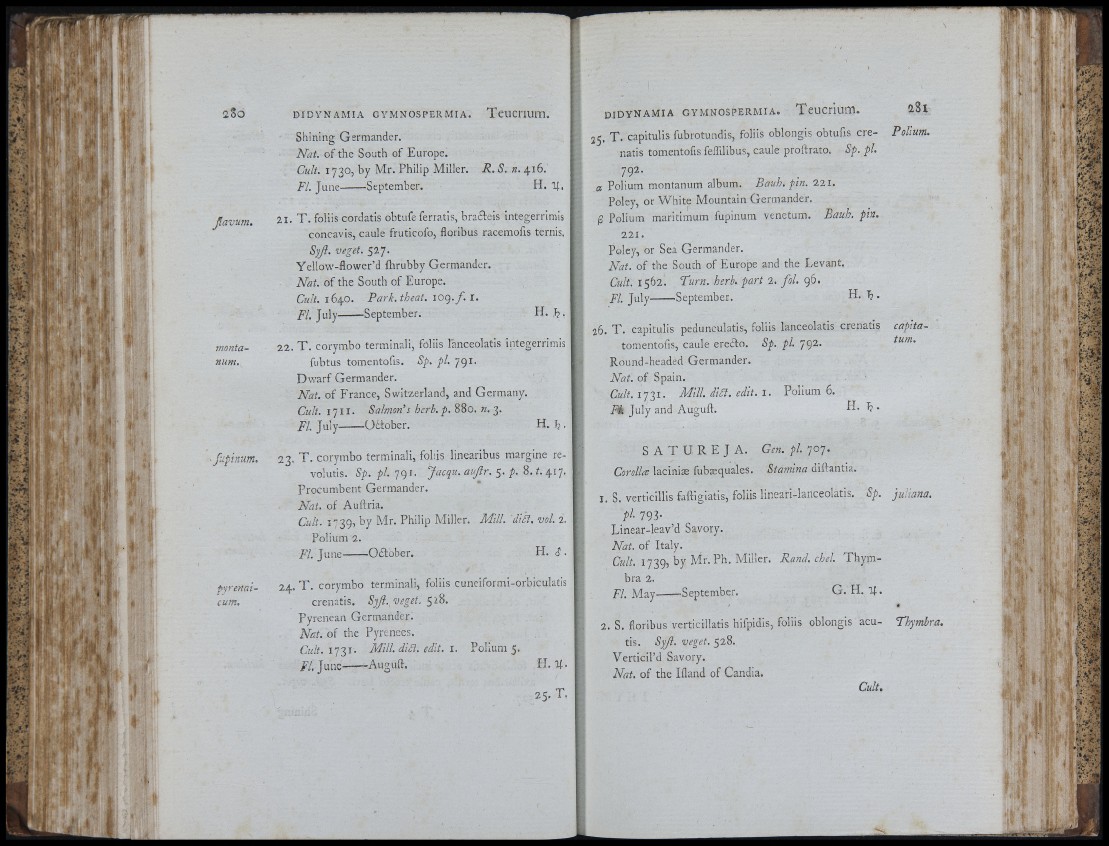 280 DIDYNAMIA GYMNOSPERMIA. Teucrium.
Shining Germander.
Nat. of the South of Europe.
Cult. 1730, by Mr. Philip Miller. R. S. n. 416.
Fl. June——September. H. ♃.
flavum. 21. T. foliis cordatis obtuſe ſerratis, bracteis integerrimis
concavis, caule fruticoſo, floribus racemoſis ternis.
Syſt. veget. 527.
Yellow-flower'd ſhrubby Germander.
Nat. of the South of Europe.
Cult. 1640. Park. theat. 109. f. 1.
Fl. July——September. H. ♄.
monta- 22. T. corymbo terminali, foliis lanceolatis integerrimis
num. ſubtus tomentoſis. Sp. pl. 791.
Dwarf Germander.
Nat. of France, Switzerland, and Germany.
Cult. 1711. Salmon's herb. p. 880. n. 3.
Fl. July——October. H. ♄.
ſupinum. 23. T. corymbo terminali, foliis linearibus margine re-
volutis. Sp. pl. 791. Jacqu. auſtr. 5. p. 8. t. 417.
Procumbent Germander.
Nat. of Auſtria.
Cult. 1739, by Mr. Philip Miller. Mill. dict. vol. 2.
Polium 2.
Fl. June——October. H. ♂.
pyrenai- 24. T. corymbo terminali, foliis cuneiformi-orbiculatis
cum. crenatis. Syſt. veget. 528.
Pyrenean Germander.
Nat. of the Pyrenees.
Cult. 1731. Mill. dict. edit. 1. Polium 5.
Fl. June——Auguſt. H. ♃.
25. T.
DIDYNAMIA GYMNOSPERMIA. Teucrium. 281
25. T. capitulis ſubrotundis, foliis oblongis obtuſis cre- Polium.
natis tomentoſis ſeſſilibus, caule proſtrato. Sp. pl.
792.
α Polium montanum album. Bauh. pin. 221.
Poley, or White Mountain Germander.
β Polium maritimum ſupinum venetum. Bauh. pin.
221.
Poley, or Sea Germander.
Nat. of the South of Europe and the Levant.
Cult. 1562. Turn. herb. part 2. fol. 96.
Fl. July——September. H. ♄.
26. T. capitulis pedunculatis, foliis lanceolatis crenatis capita-
tomentoſis, caule erecto. Sp. pl. 792. tum.
Round-headed Germander.
Nat. of Spain.
Cult. 1731. Mill. dict. edit. 1. Polium 6.
Fl. July and Auguſt. H. ♄.
SATUREJA. Gen. pl. 707.
Corollæ laciniæ ſubæquales. Stamina diſtantia.
1. S. verticillis faſtigiatis, foliis lineari-lanceolatis. Sp. juliana.
pl. 793.
Linear-leav'd Savory.
Nat. of Italy.
Cult. 1739, by Mr. Ph. Miller. Rand. chel. Thym-
bra 2.
Fl. May——September. G. H. ♃.
2. S. floribus verticillatis hiſpidis, foliis oblongis acu- Thymbra.
tis. Syſt. veget. 528.
Verticil'd Savory.
Nat. of the Iſland of Candia.
Cult.